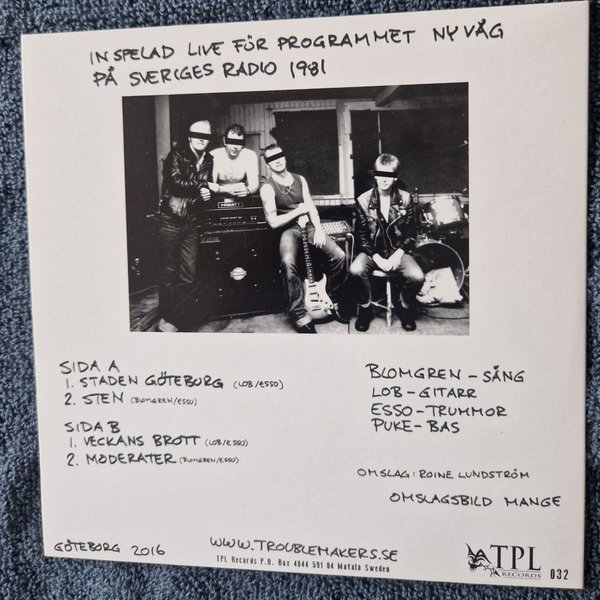 INSPELAD LIVE FÖR PROGRAMMET NY VÅG
PÅ SVERIGES RADIO 1981
HIWATT
SIDA A
1. STADEN GÖTEBORG (LOB/ESSO)
2. STEN (BLOMGREN/ESSO)
SIDA B
1. VECKANS BROTT (LOB/ESSO)
2. MODERATER (BLOMGREN/ESSO)
BLOMGREN - SÅNG
LOB - GITARR
ESSO - TRUMMOR
PUKE - BAS
OMSLAG: ROINE LUNDSTRÖM
OMSLAGSBILD MANGE
GÖTEBORG 2016
WWW.TROUBLEMAKERS.SE
TPL Records P.O. Box 4044 591 04 Motala Sweden
TPL
RECORDS
032